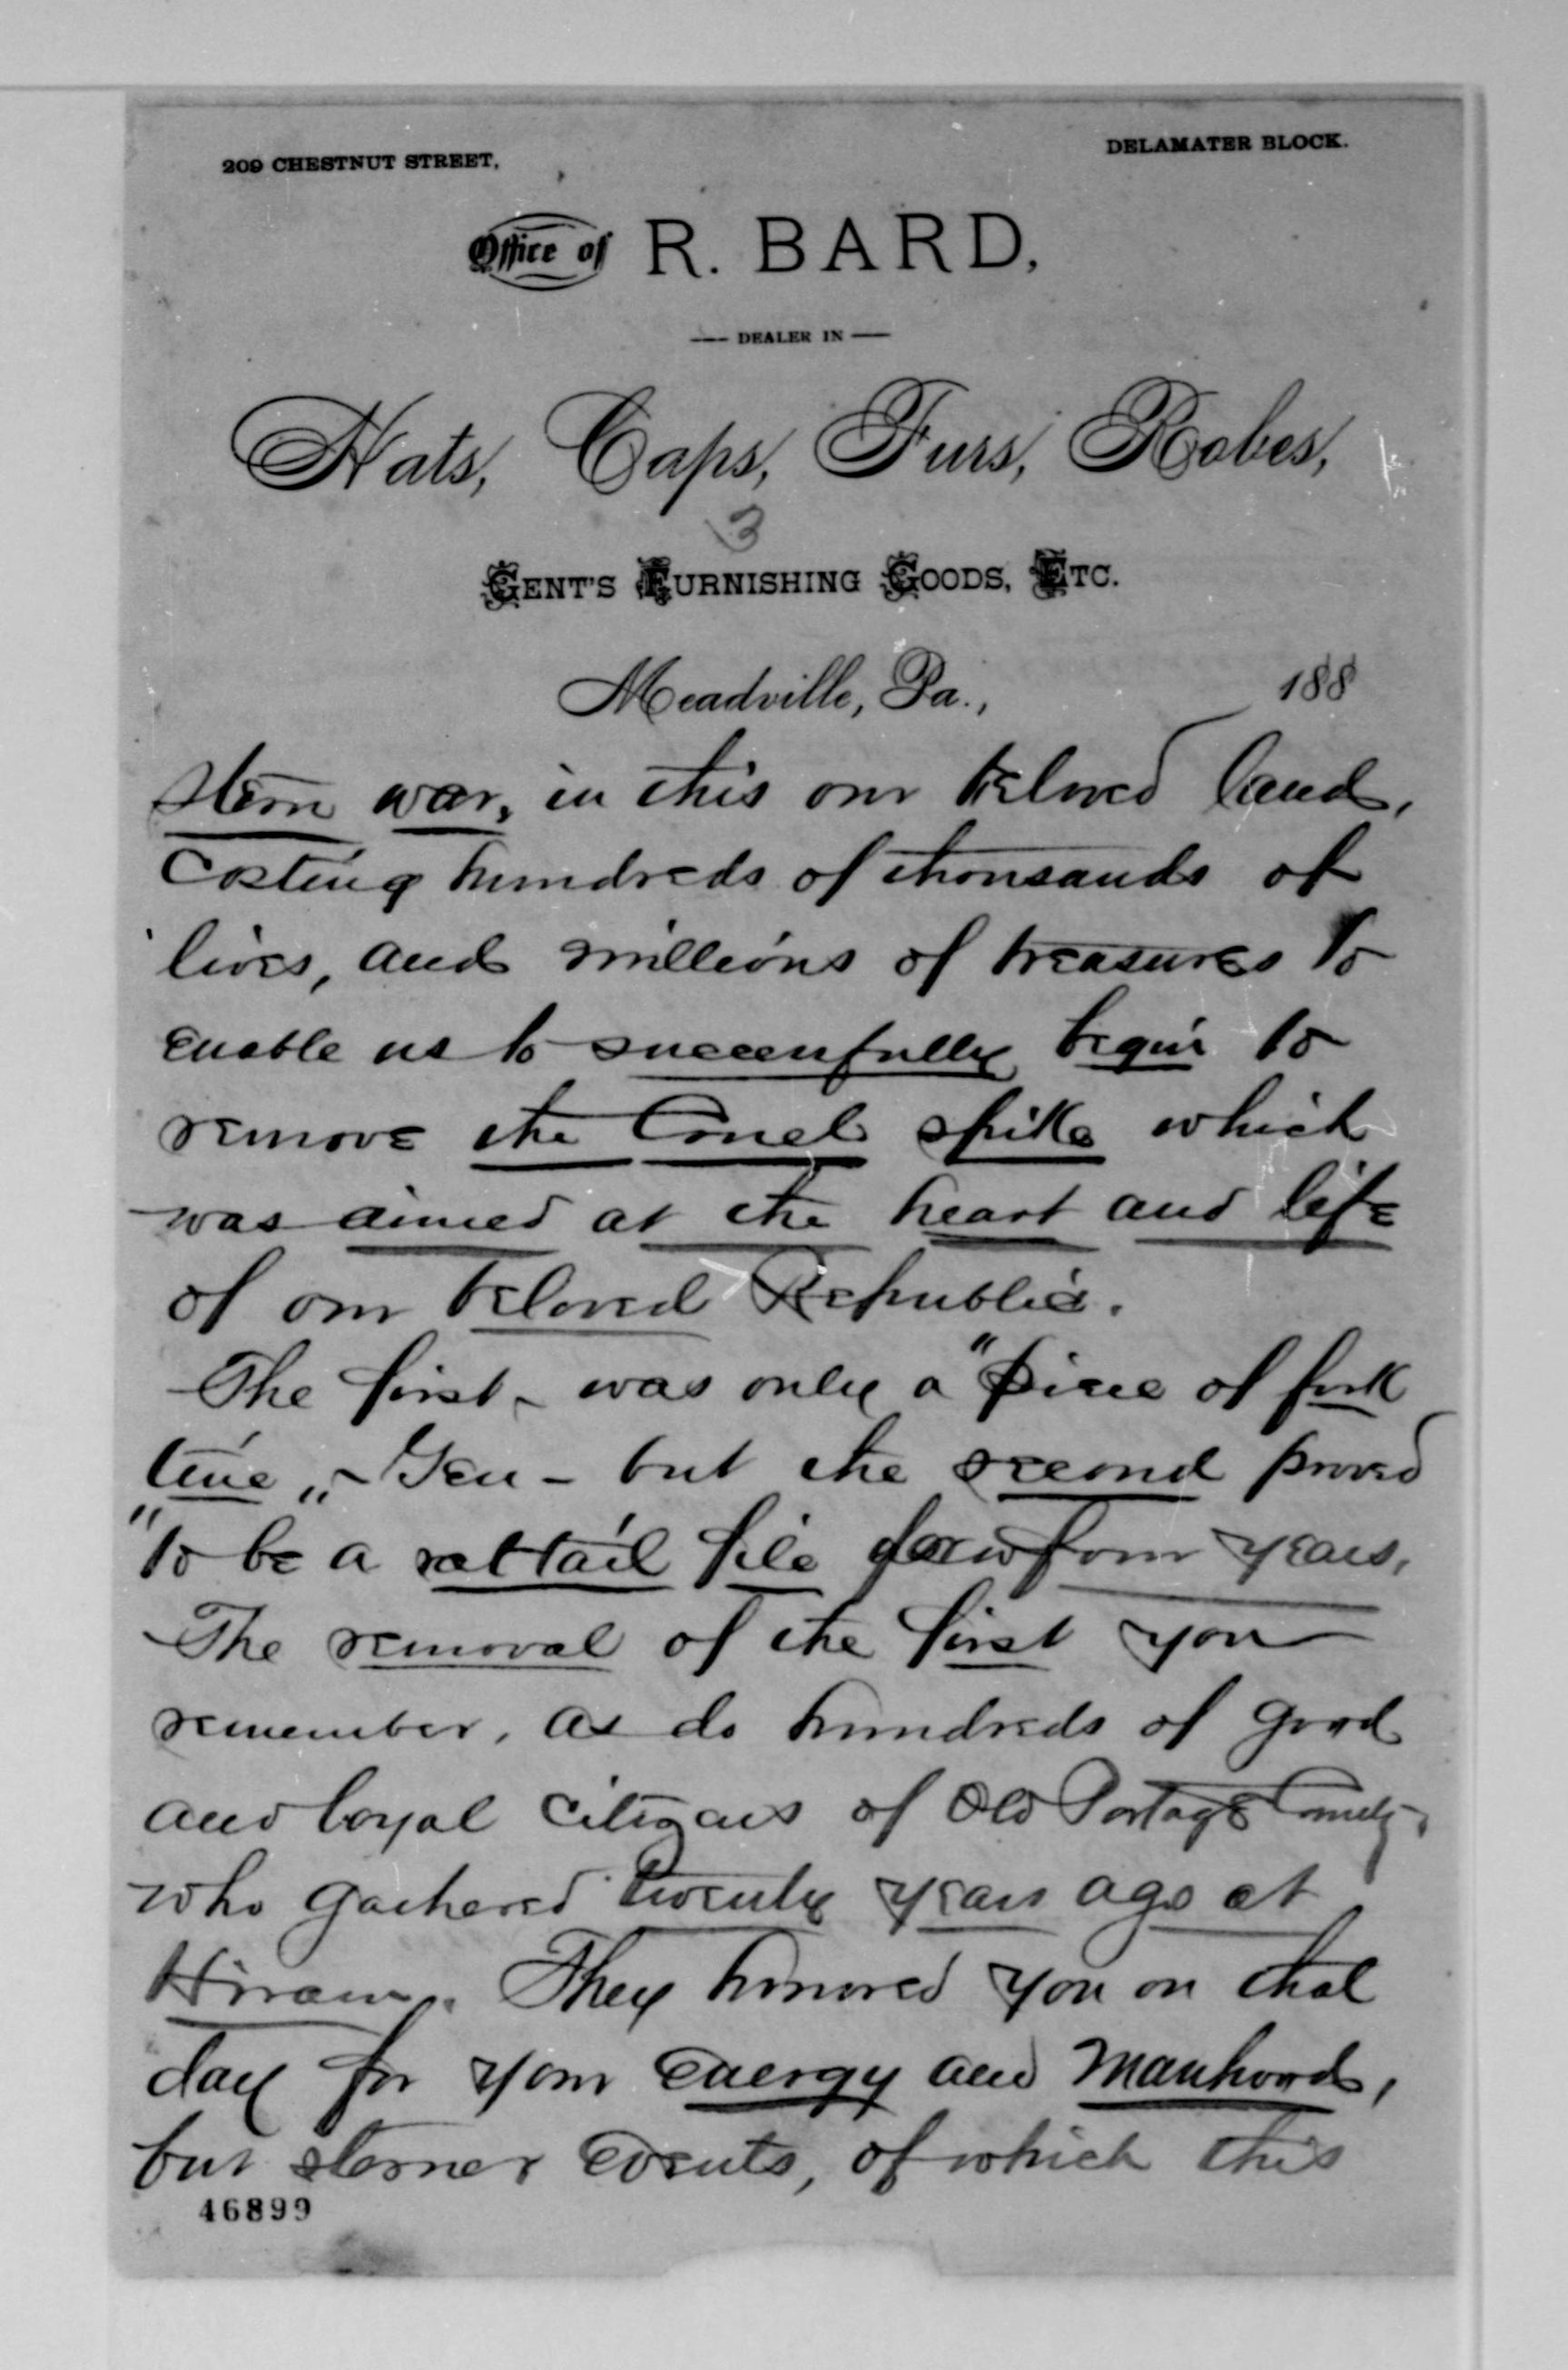 209 CHESTNUT STREET,
DELAMATER BLOCK.
Office of R. BARD,
DEALER IN
Hats, Caps, Furs, Robes,
3
GENT'S FURNISHING GOODS, ETC.
Meadville, Pa., 188
stern war, in this our beloved land,
costing hundreds of thousands of
lives, and millions of treasures to
enable us to successfully begin to
remove the Cruel spike which
was aimed at the heart and life
of our beloved Republic.
The first - was only a "piece of fork
tine" - Gen - but the second proved
"to be a rattail file four years.
The removal of the first you
remember, as do hundreds of good
and loyal citizens of Old Portage County,
who gathered twenty years ago at
Hiram. They honored you on that
day for your energy and manhood,
but sterner events, of which this
46899